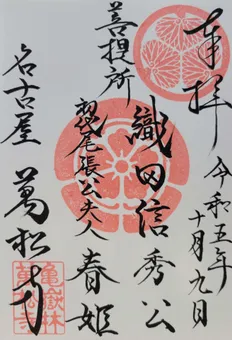 奉拝
令和五年十月九日
織田信秀公
菩提所
初代尾張公夫人 春姫
名古屋 萬松寺
亀嶽林
萬松寺